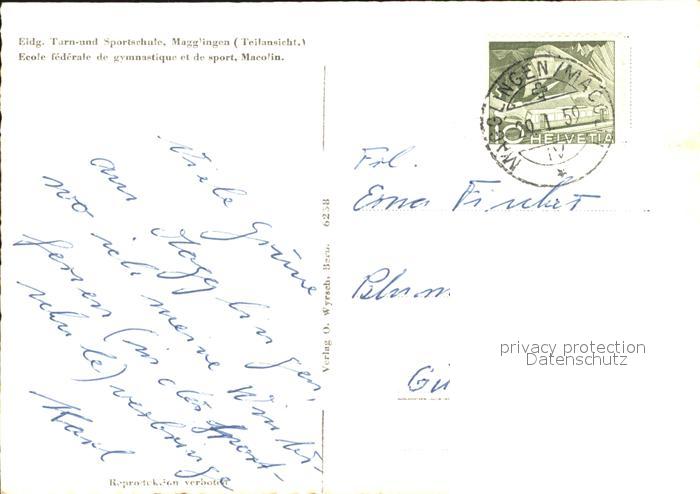 Eidg. Turn-und Sportschule, Magglingen (Teilansicht.)
Ecole fédérale de gymnastique et de sport, Macolin.
Viele Grüsse
aus Magglingen,
wo ich meine Winter-
ferien (in der Sport-
schule) verbringe
Karl
Reproduktion verboten
Verlag O. Wyrsch, Bern. 6258
MAGGLINGEN/MACOLIN
20. 1. 59
IV
10 HELVETIA
Frl.
Erna Fischer
Blum
Gü
privacy protection
Datenschutz